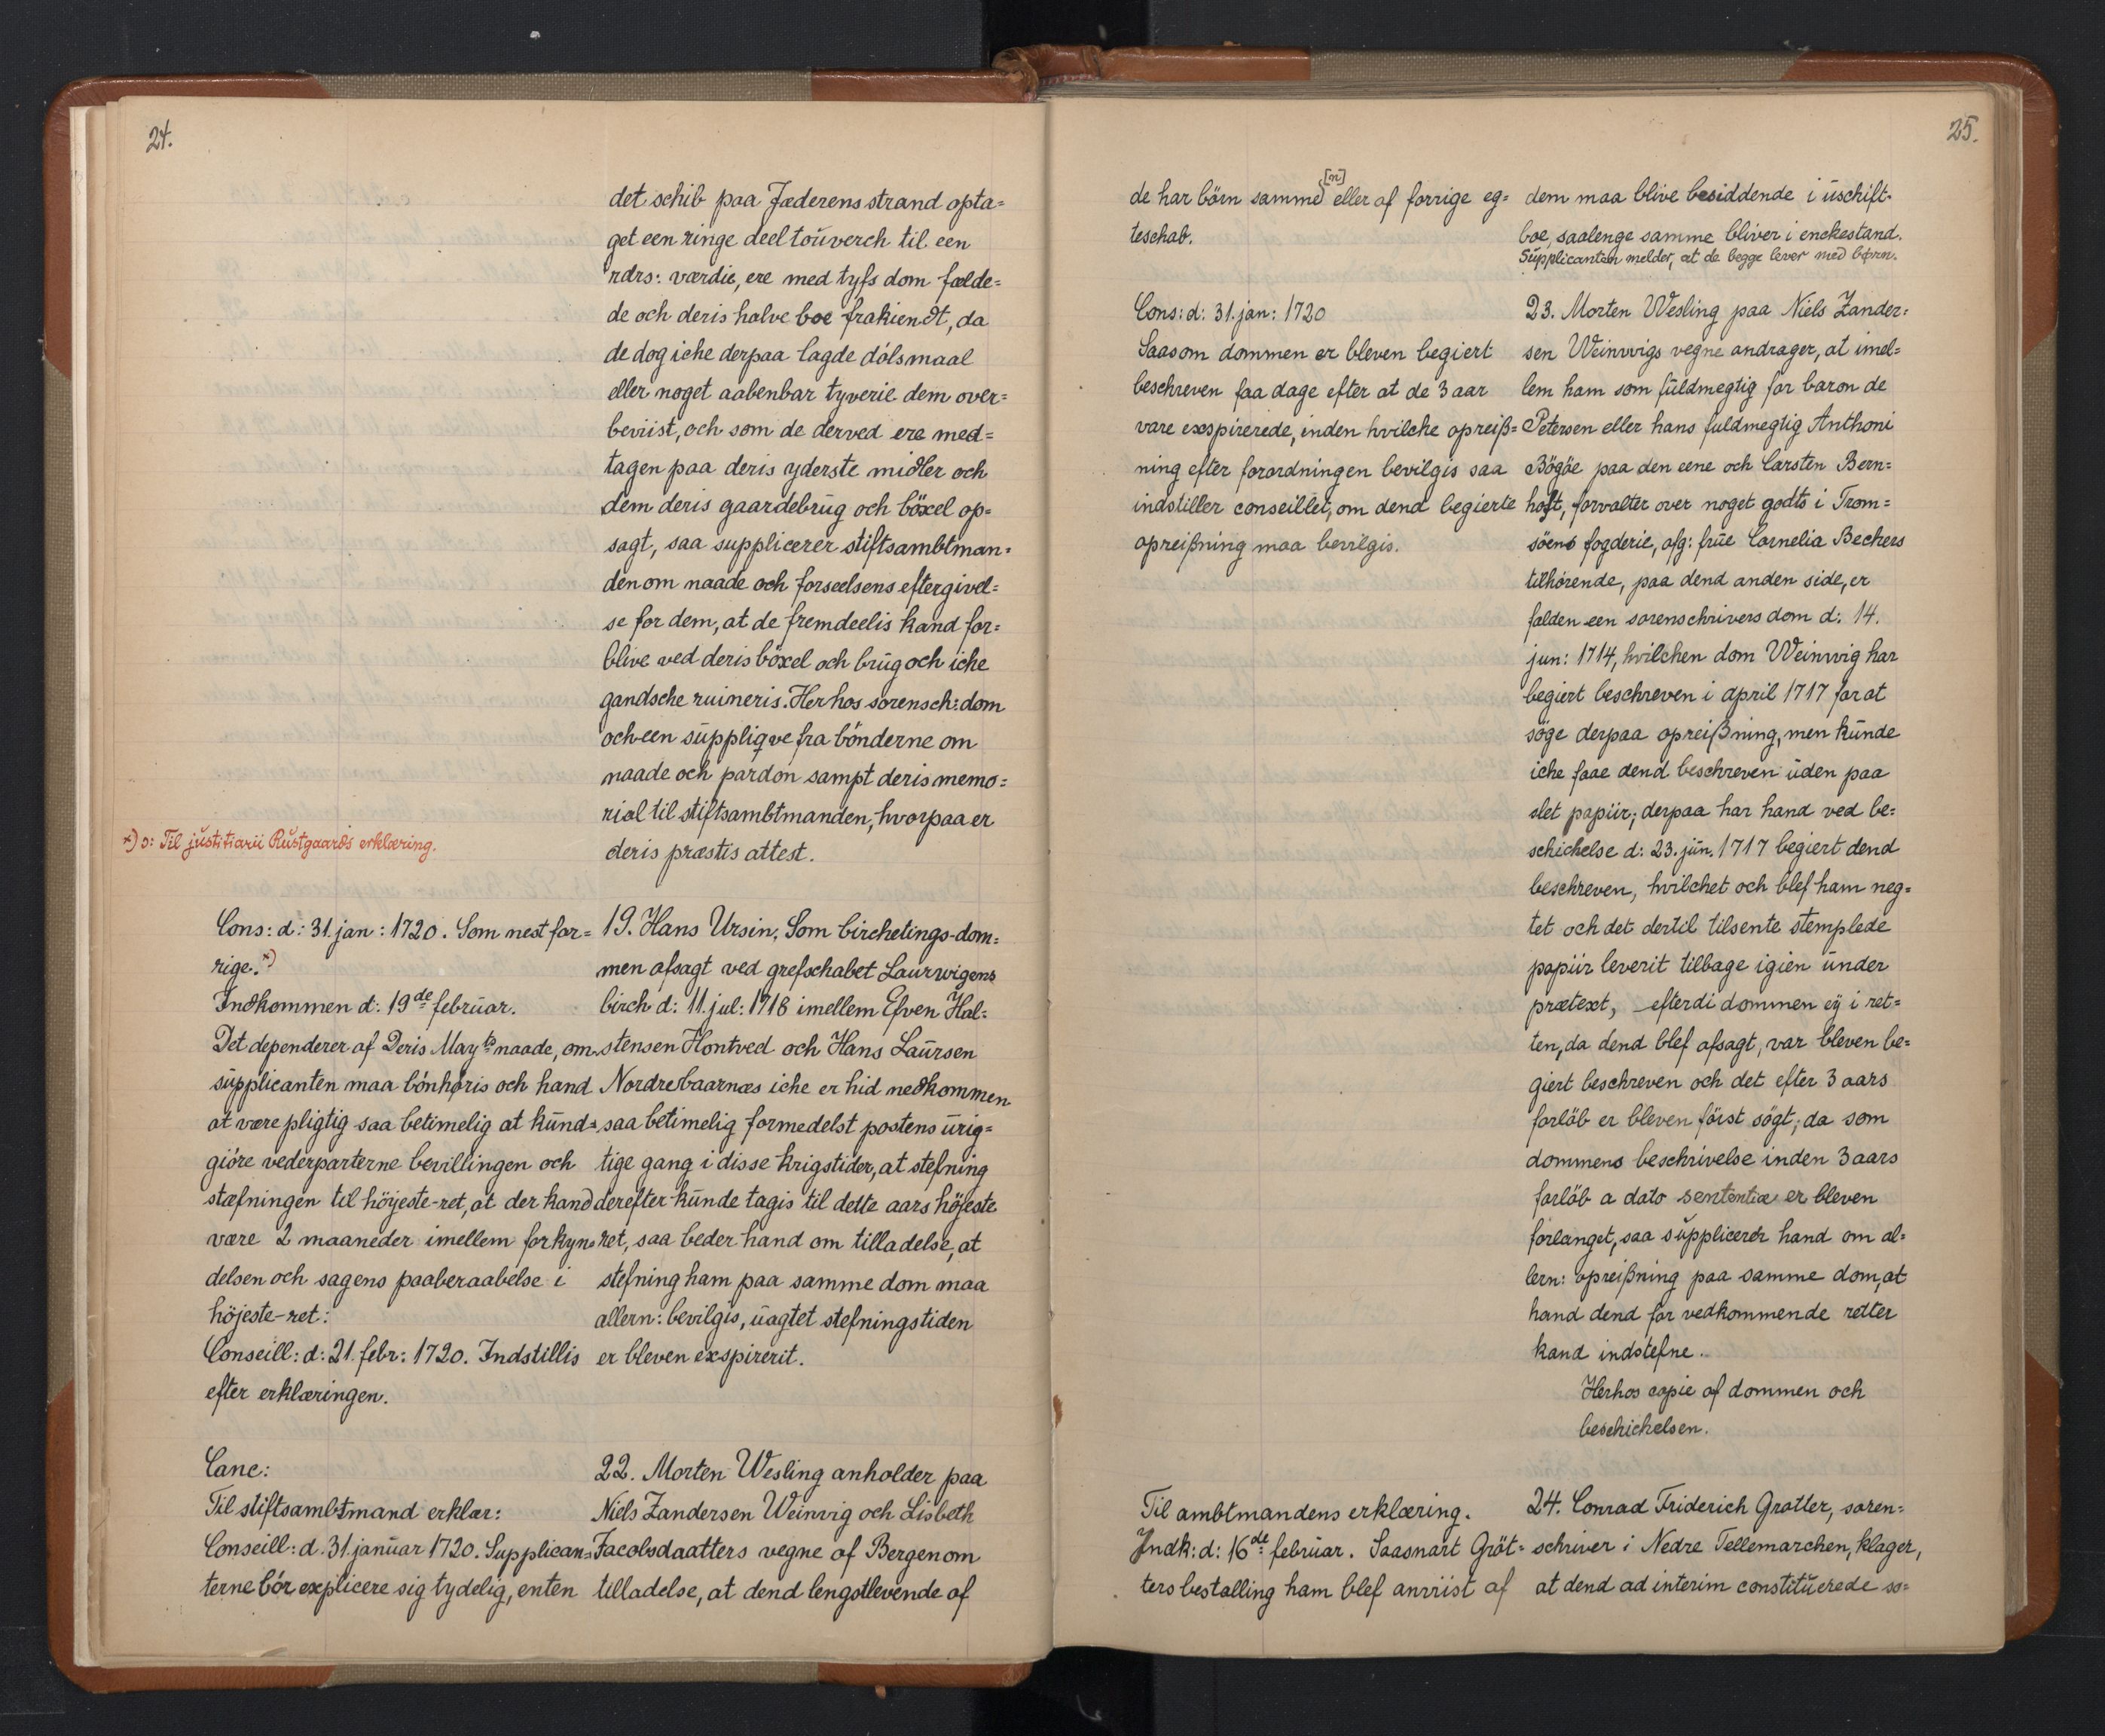 24.
det schib paa Jæderens strand opta=
get een ringe deel toŭverch til een
rdrs: værdie, ere med tyfs dom fælde=
de och deris halve boe frakiendt, da
de dog iche derpaa lagde dólsmaal
eller noget aabenbar tyverie dem over=
beviist, och som de derved ere med=
tagen paa deris yderste midler och
dem deris gaardebrŭg och böxel op=
sagt, saa supplicerer stiftsambtman=
den om naade och forseelsens eftergivel=
se for dem, at de fremdeelis kand for=
blive ved deris böxel och brŭg och iche
gandsche ruineris. Herhos sorensch: dom
och een sŭppliqve fra bónderne om
naade och pardon sampt deris memo=
rial til stiftsambtmanden, hvorpaa er
deris præstis attest.
*) ɔ: Til jŭstitiarii Rŭstgaards erklæring.
Cons: d: 31. jan: 1720. Som nest for=
rige.*)
Indkommen d: 19de februar.
Det dependerer af Deris Mayts naade, om
sŭpplicanten maa bónhøris och hand
at være pligtig saa betimelig at kŭnd=
gióre vederparterne bevillingen och
stæfningen til höyeste-ret, at der kand
være 2 maaneder imellem forkyn=
delsen och sagens paaberaabelse i
höjeste-ret:
Conseill: d: 21. febr: 1720. Indstillis
efter erklæringen.
19. Hans Ursin, Som birchetings-dom=
men afsagt ved grefschabet Laurwigens
birch d: 11. jul: 1718 imellem Efven Hal=
stensen Hontved och Hans Laŭrsen
Nordrebaarnæs iche er hid nedkommen
saa betimelig formedelst postens ŭrig=
tige gang i disse krigstider, at stefning
derefter kŭnde tagis til dette aars höjeste
ret, saa beder hand om tilladelse, at
stefning ham paa samme dom maa
allern: bevilgis, ŭagtet stefningstiden
er bleven exspirerit.
Canc:
Til stiftsambtmand erklær:
Conseill: d. 31. janŭar 1720. Supplican=
terne bór explicere sig tydelig, enten
22. Morten Wesling anholder paa
Niels Zandersen Weinvig och Lisbeth
Jacobsdaatters vegne af Bergen om
tilladelse, at dend lengstlevende af
25.
de har börn samme[n] eller af forrige eg=
teschab.
dem maa blive besiddende i ŭschift-
boe, saalenge samme bliver i enckestand.
Sŭpplicanten melder, at de begge lever med børn.
Cons: d: 31. jan: 1720
Saasom dommen er bleven begiert
beschreven faa dage efter at de 3 aar
vare exspirerede, inden hvilche opreiß=
ning efter forordningen bevilgis saa
indstiller conseillet, om dend begierte
opreißning maa bevilgis.
23. Morten Wesling paa Niels Zander=
sen Weinvvigs vegne andrager, at imel=
lem ham som fŭldmegtig for baron de
Petersen eller hans fuldmegtig Anthoni
Bögöe paa den eene och Carsten Bern=
hoft, forvalter over noget godts i Trom=
söens fogderie, afg: frŭe Cornelia Bechers
tilhórende, paa dend anden side, er
falden een sorenschrivers dom d: 14.
jun: 1714, hvilchen dom Weinvvig har
begiert beschreven i april 1717 for at
söge derpaa opreißning, men kŭnde
iche faae dend beschreven ŭden paa
slet papiir; derpaa har hand ved be=
schichelse d: 23. jŭn. 1717 begiert dend
beschreven, hvilchet och blef ham neg=
tet och det dertil tilsente stemplede
papiir leverit tilbage igien ŭnder
prætext, efterdi dommen eÿ i ret=
ten, da dend blef afsagt, var bleven be=
giert beschreven och det efter 3 aars
forlöb er bleven först sögt; da som
dommens beschrivelse inden 3 aars
forlöb a dato sententiæ er bleven
forlanget, saa sŭpplicerer hand om al=
lern: opreißning paa samme dom, at
hand dend for vedkommende retter
kand indstefne.
Herhos copie af dommen och
beschichelsen.
Til ambtmandens erklæring.
Indk: d: 16de februar. Saasnart Gröt=
ters bestalling ham blef anviist af
24. Conrad Friderich Grøtter, soren=
schriver i Nedre Tellemarchen, klager,
at dend ad interim constitŭerede so=